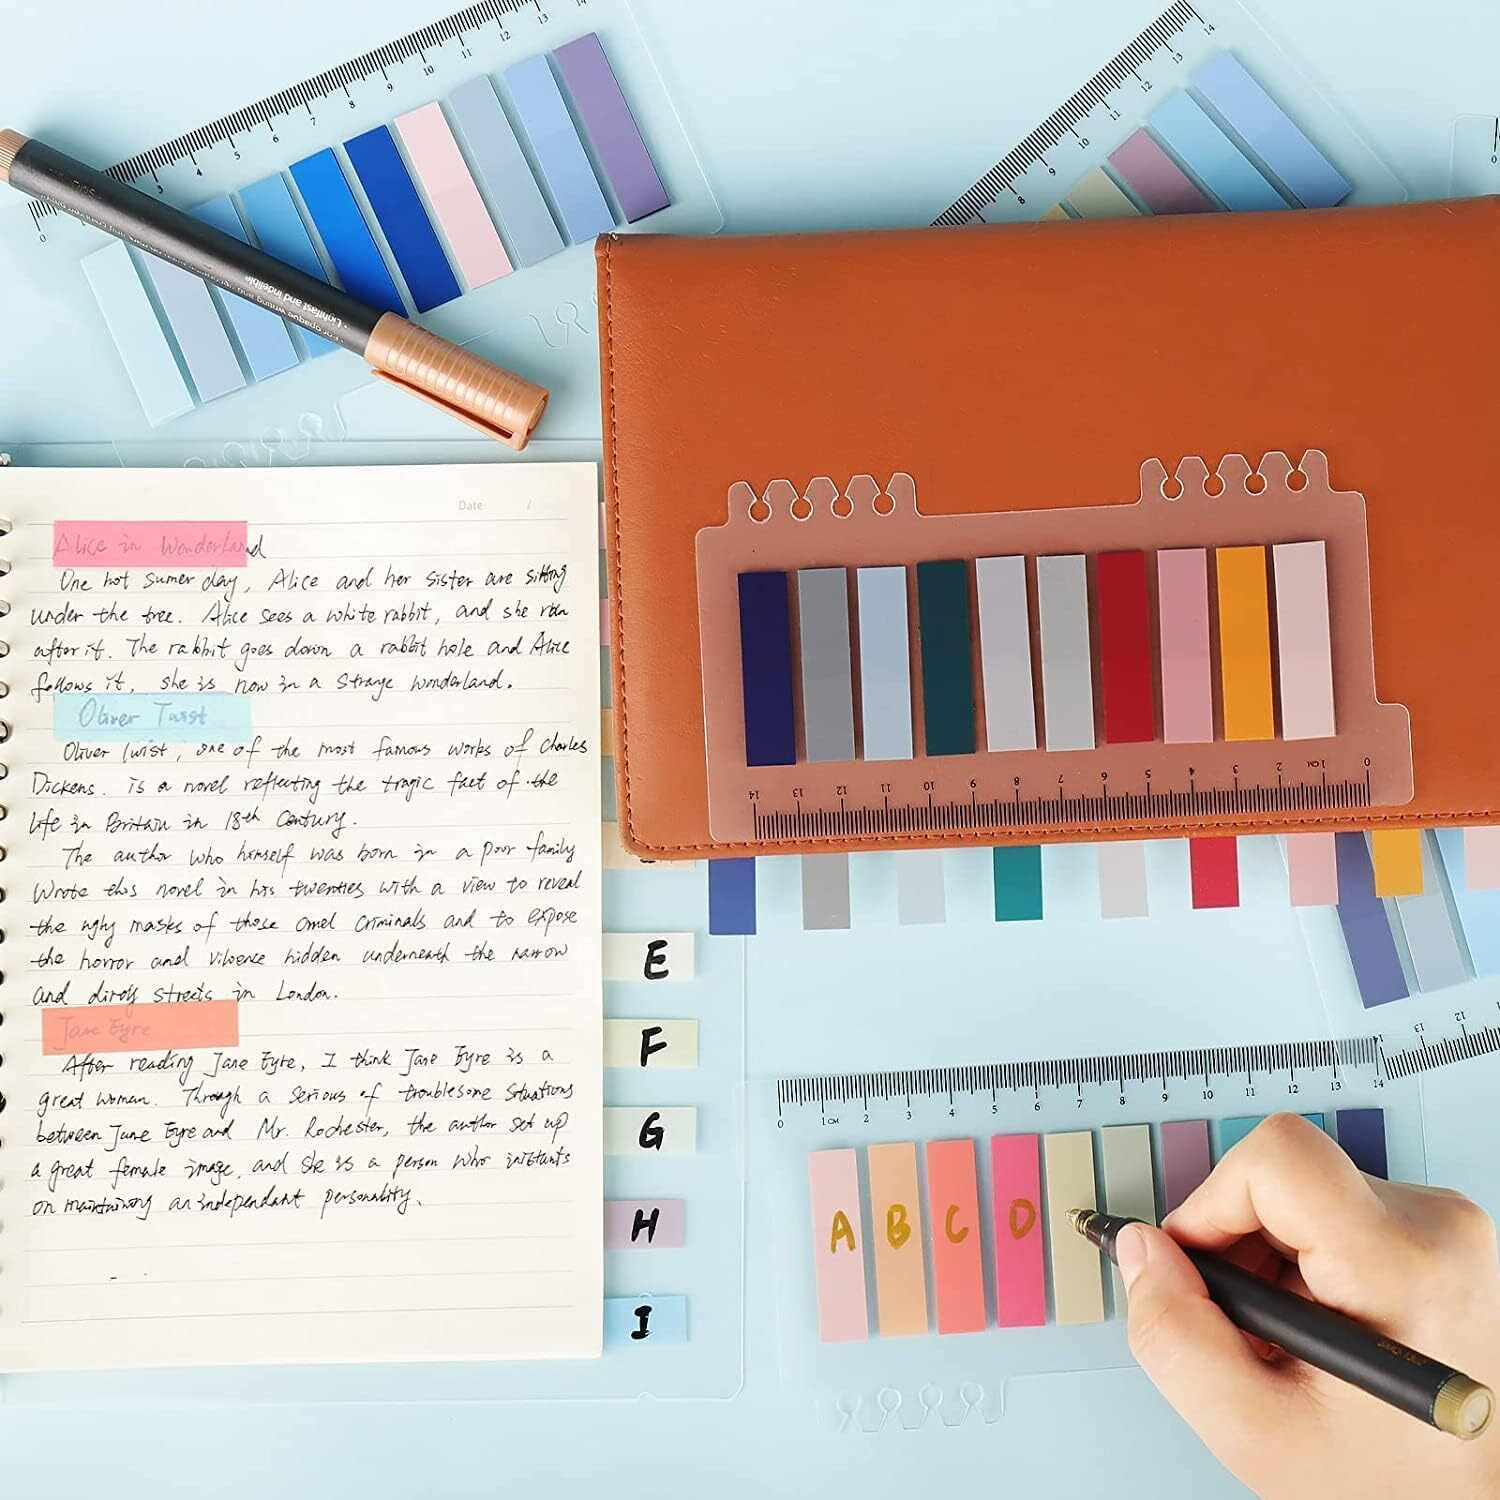 Date: /
Alice in Wonderland
One hot sumer day, Alice and her sister are sitting
under the tree. Alice sees a white rabbit, and she run
after it. The rabbit goes down a rabbit hole and Alice
follows it, she is now in a strange wonderland.
Oliver Twist
Oliver Twist, one of the most famous works of Charles
Dickens. is a novel reflecting the tragic fact of the
life in Britain in 18th Century.
The author who himself was born in a poor family
wrote this novel in his twenties with a view to reveal
the ugly masks of those cruel criminals and to expose
the horror and vilence hidden underneath the narrow
and dirty streets in London.
Jane Eyre
After reading Jane Eyre, I think Jane Eyre is a
great woman. Through a serious of troublesome situations
between Jane Eyre and Mr. Rochester, the author set up
a great female image, and she is a person who
on maintaining an independant personality.
E
F
G
H
I
A B C D
• Lightfast and indelible
0 3 4 5 6 7 8 9 10 11 12 13 14
8 9 10 11 12 13 14
14 13 12 11 10 9 8 7 6 5 4 3 2 1CM 0
0 1CM 2 3 4 5 6 7 8 9 10 11 12 13 14
14 13 12